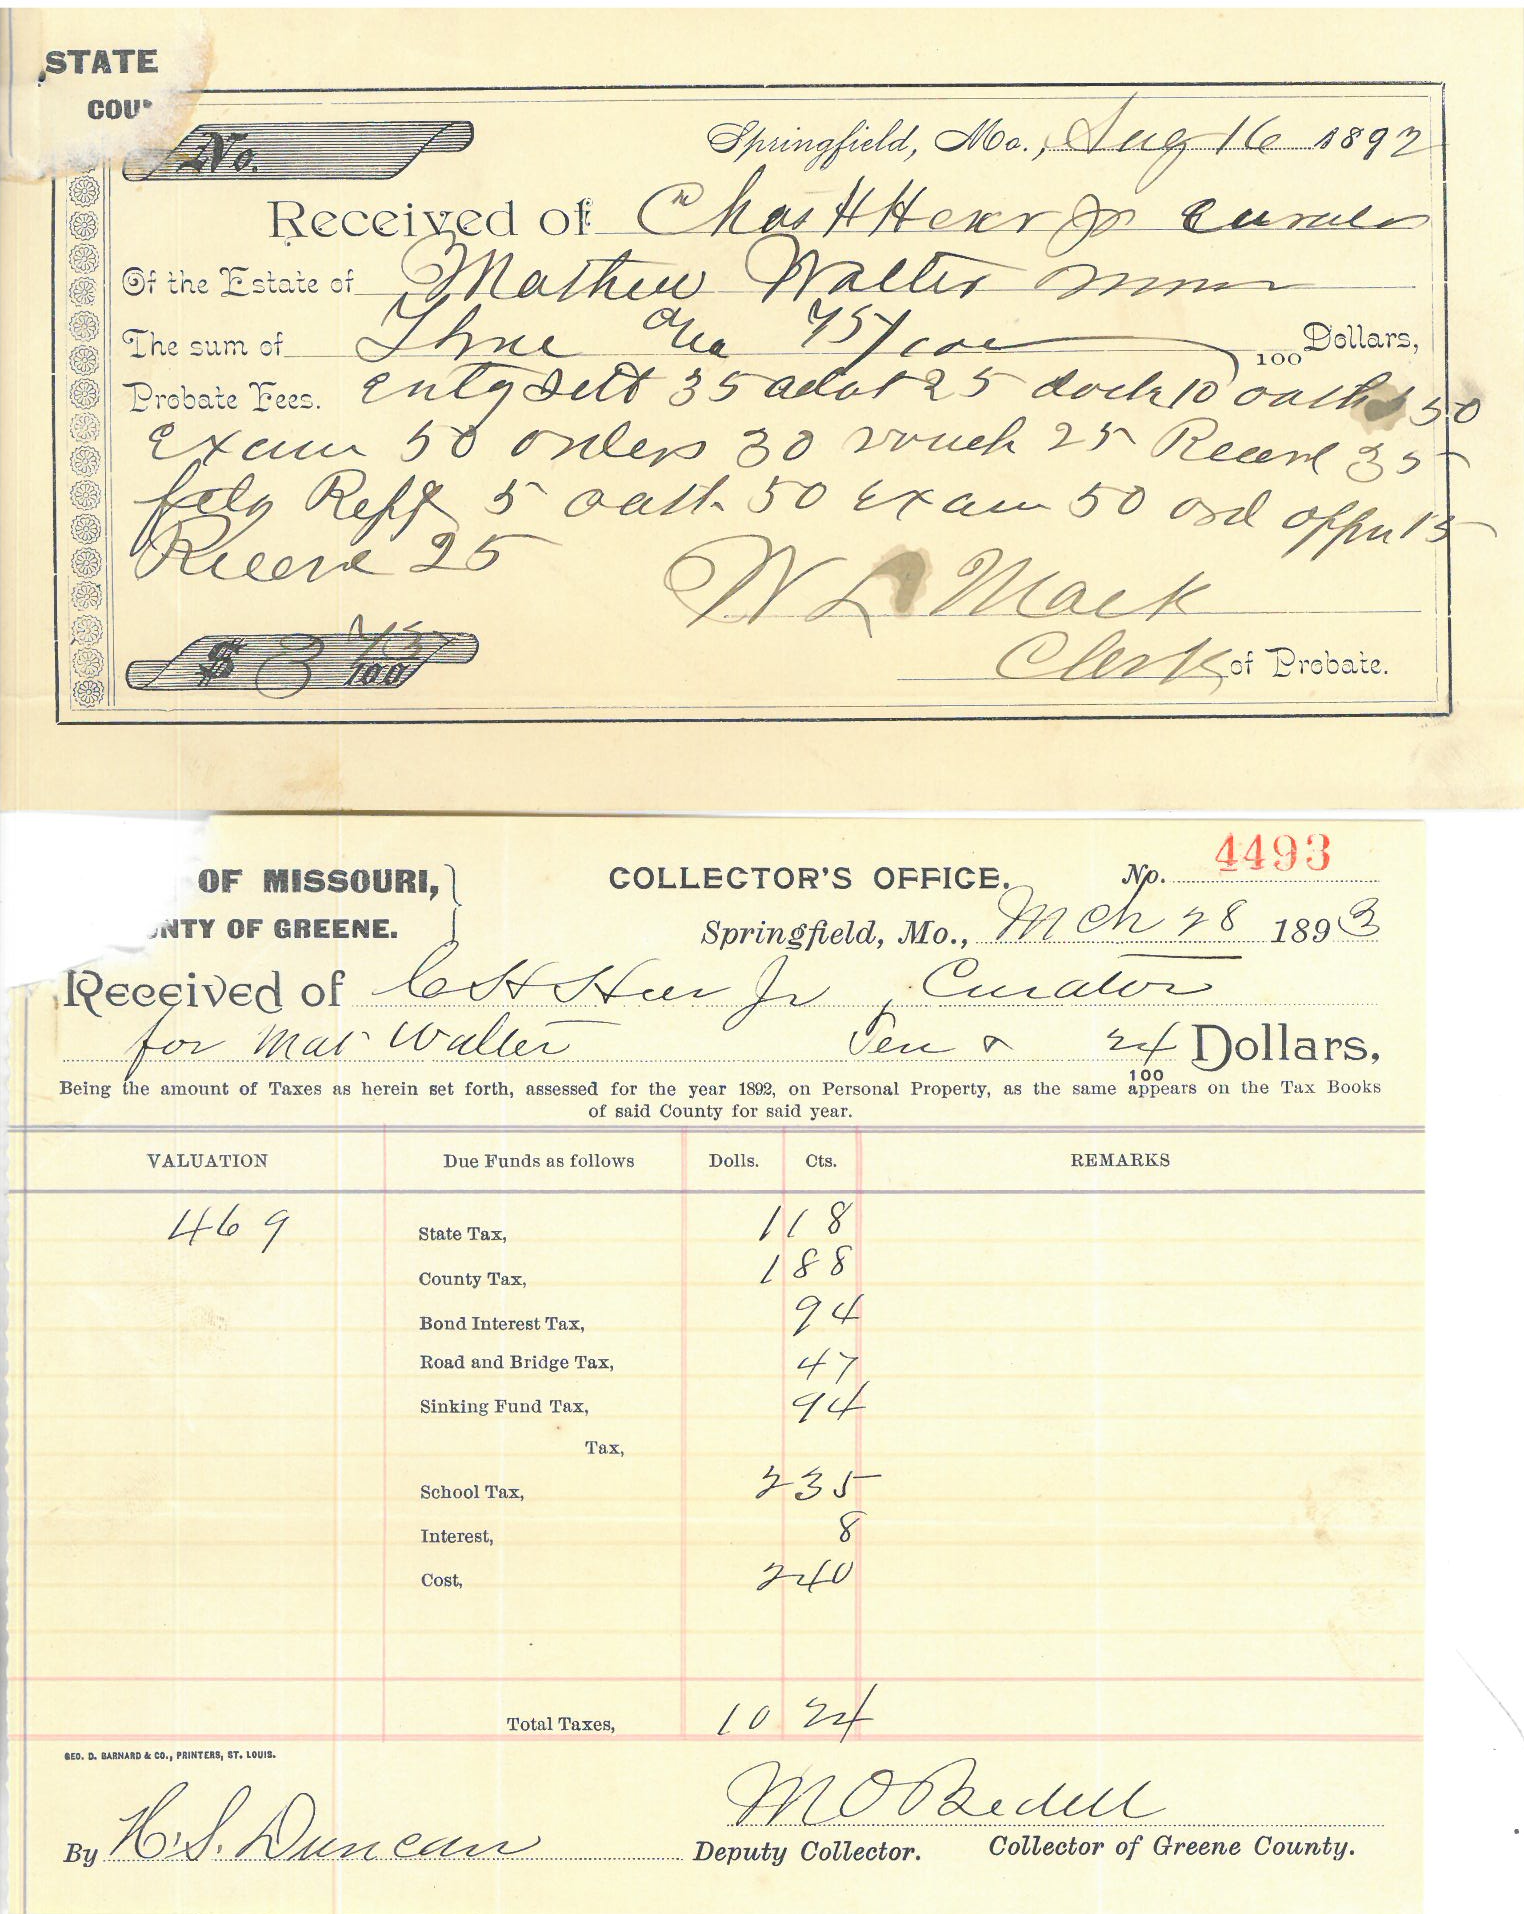 STATE
COUN
No.
Springfield, Mo., Aug 16 1892
Received of Chas H Heer Jr Curator
Of the Estate of Mathew Walter minor
The sum of Three 75/100 Dollars,
100
Probate Fees. entg sett 35 adot 25 dock 10 oath 50
Exam 50 orders 30 vouch 25 Record 35
Reff 5 oath 50 Exam 50 ord 15
Record 25
W L Mack
Clerk of Probate.
$ 3 75/100
OF MISSOURI,
NTY OF GREENE.
COLLECTOR'S OFFICE.
No. 4493
Springfield, Mo., Mch 28 1893
Received of C H Heer Jr, Curator
for Mat Walter Ten & 24/100 Dollars,
Being the amount of Taxes as herein set forth, assessed for the year 1892, on Personal Property, as the same appears on the Tax Books
of said County for said year.
VALUATION Due Funds as follows Dolls. Cts. REMARKS
469 State Tax, 1 18
County Tax, 1 88
Bond Interest Tax, 94
Road and Bridge Tax, 47
Sinking Fund Tax, 94
Tax,
School Tax, 2 35
Interest, 8
Cost, 2 40
Total Taxes, 10 24
GEO. D. BARNARD & CO., PRINTERS, ST. LOUIS.
M O Bedell
By H. S. Duncan Deputy Collector. Collector of Greene County.